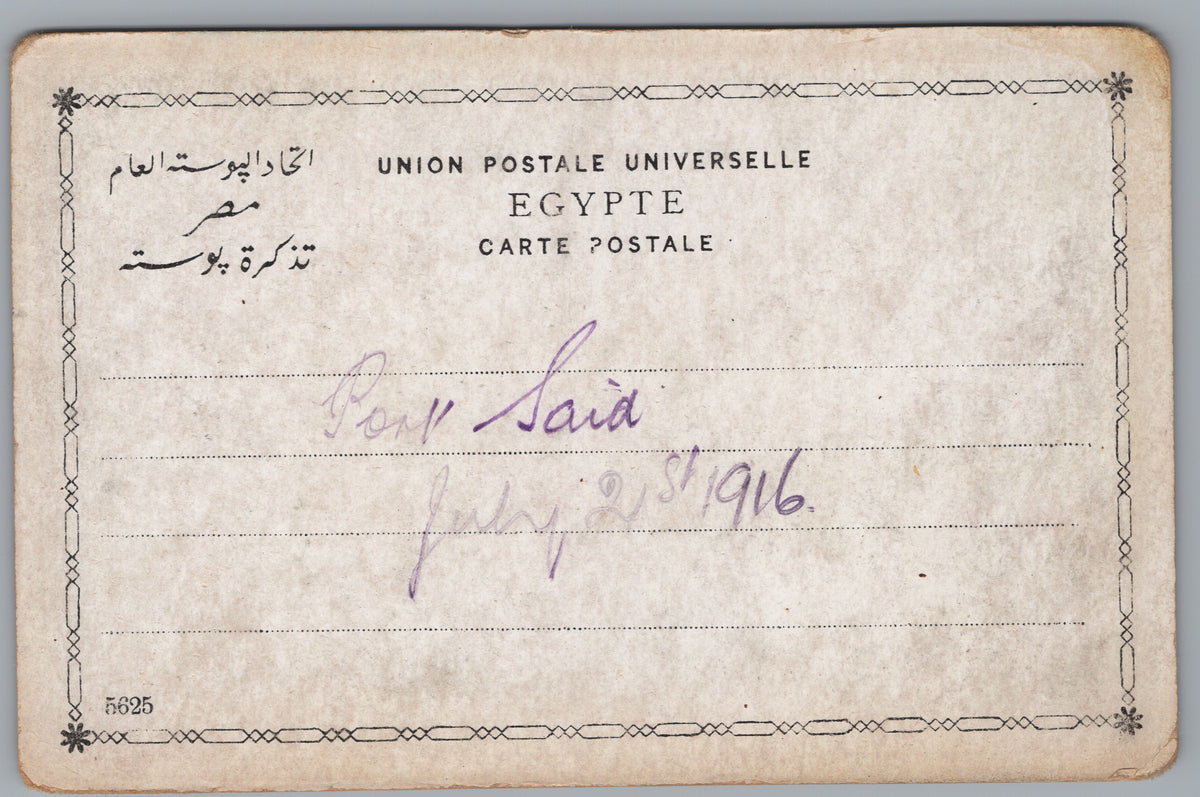 اتحاد البوسته العام
مصر
تذكرة بوسته
UNION POSTALE UNIVERSELLE
EGYPTE
CARTE POSTALE
Port Said
July 21st 1916.
5625